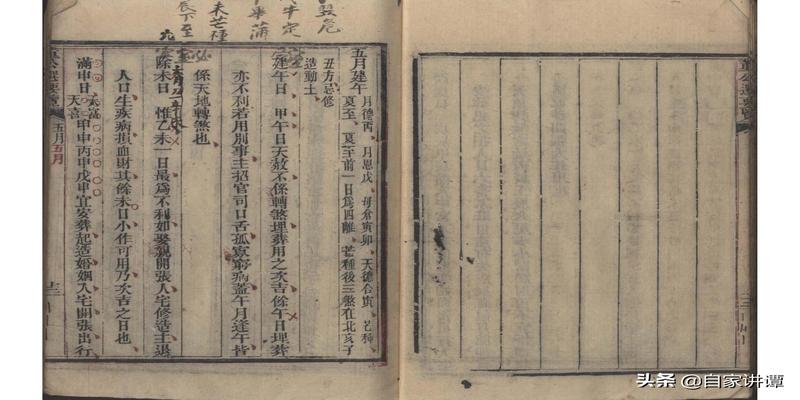 董公選要覽
未芒種
五月建午 月德丙、月恩戊、母倉寅卯、天德合寅、芒種
夏至、夏至前一日為四離、芒種後三煞在北亥子
丑方忌修
造動土
建午日 甲午日天赦不係轉煞埋葬用之次吉餘午日埋葬
亦不利若用別事主招官司口舌孤寡窮病蓋午月逢午皆
係天地轉煞也
除未日 惟乙未一日最為不利如娶親開張入宅修造主退
人口生疾病損血財其餘未日小作可用乃次吉之日也
滿申日 天富
天喜 甲申丙申戊申宜安葬起造婚姻入宅開張出行
公選要覽 五月五月 十三
头条 @自家讲谭